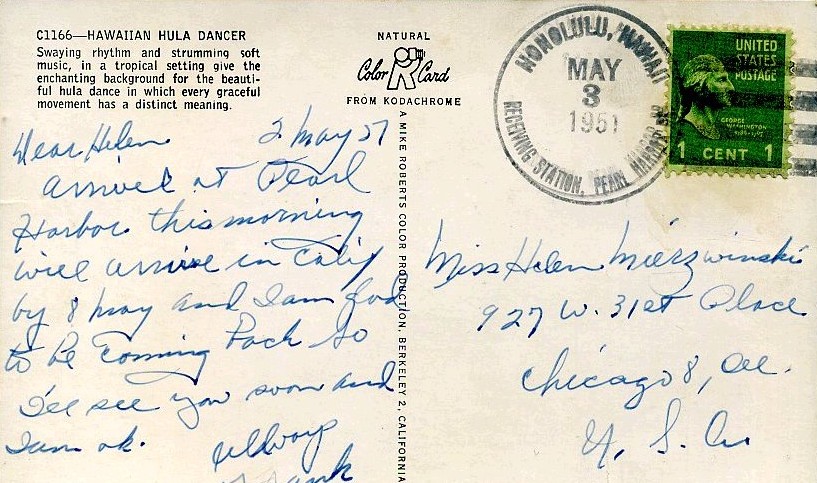 C1166—HAWAIIAN HULA DANCER
Swaying rhythm and strumming soft
music, in a tropical setting give the
enchanting background for the beauti-
ful hula dance in which every graceful
movement has a distinct meaning.
NATURAL
Color R Card
FROM KODACHROME
A MIKE ROBERTS COLOR PRODUCTION, BERKELEY 2, CALIFORNIA
HONOLULU, HAWAII
MAY
3
1951
RECEIVING STATION, PEARL HARBOR BR
UNITED
STATES
POSTAGE
GEORGE
WASHINGTON
1 CENT 1
Dear Helen 2 May 51
arrived at Pearl
Harbor this morning
will arrive in Calif
by 8 May and I am glad
to be coming back so
I'll see you soon and
I am ok.
Always
Frank
Miss Helen Mierzwinski
927 W. 31st Place
Chicago 8, Ill.
U. S. A.